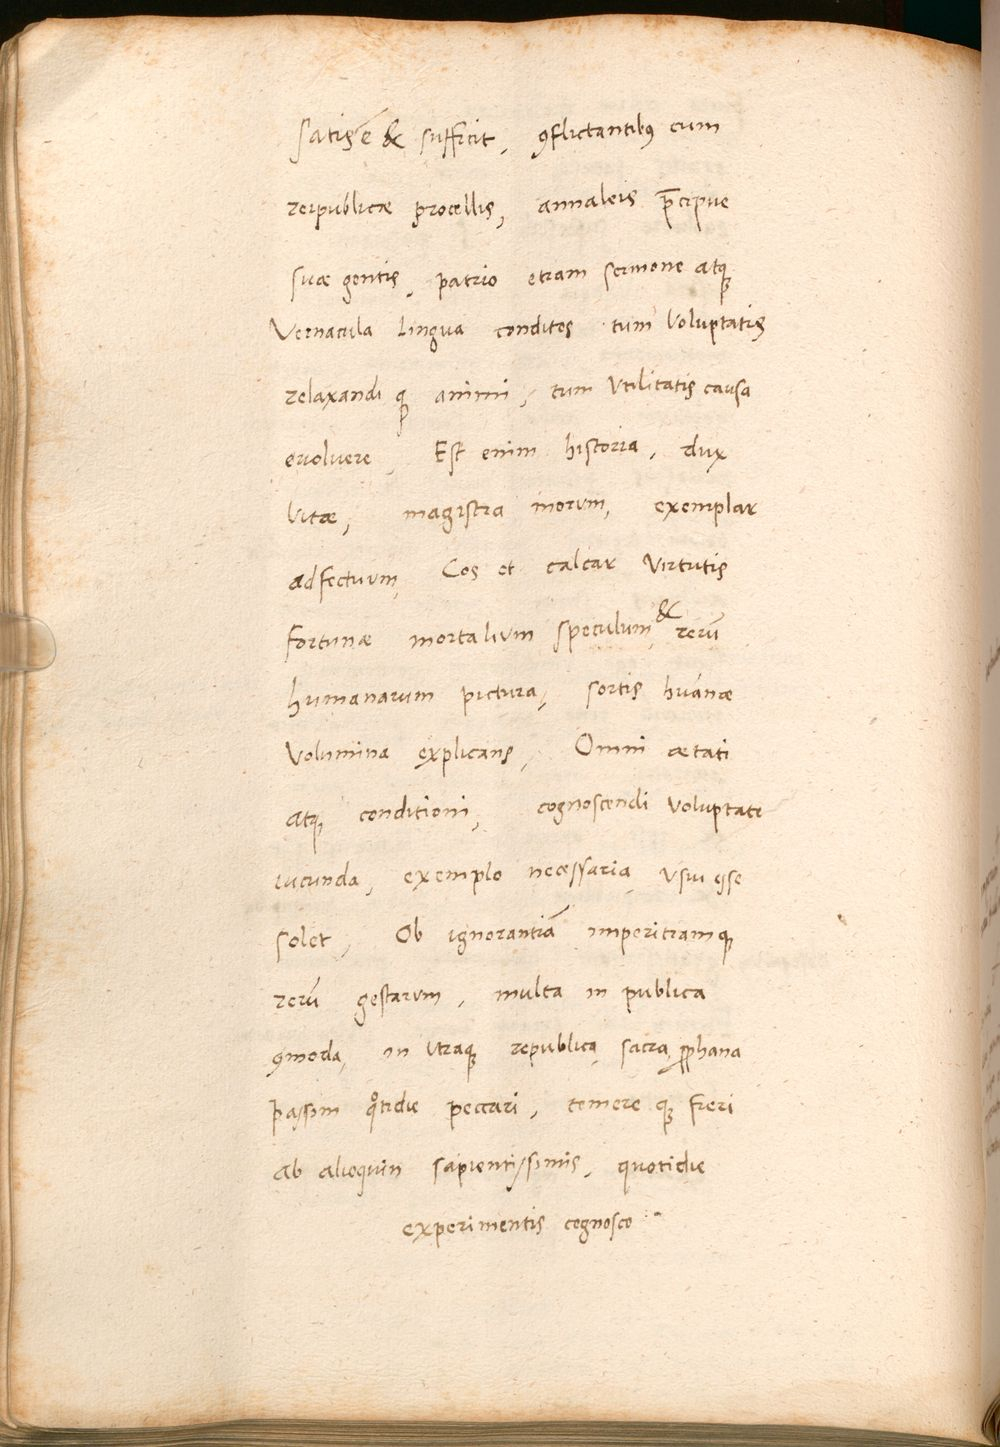 Satis ē & sufficit, ꝯflictantibꝰ cum
reipublicæ procellis, annaleis p̄cipue
suæ gentis, patrio etiam sermone atq;
Vernacula Lingua conditos tum Voluptatis
relaxandi q; animi, tum Vtilitatis causa
evoluere. Est enim historia, dux
Vitæ, magistra morum, exemplar
adfectuum, Cos et calcar Virtutis
fortunæ mortalium speculum, & rerū
humanarum pictura, sortis huānæ
Volumina explicans, Omni ætati
atq; conditioni, cognoscendi Voluptate
iucunda, exemplo necessaria Vsui esse
solet, Ob ignorantiā imperitiamq;
rerū gestarum, multa in publica
ꝯmoda, in Vtraq; republica sacra ꝓphana
passim qͦtidie peccari, temere q; fieri
ab alioquin sapientissimis, quotidie
experimentis cognosco